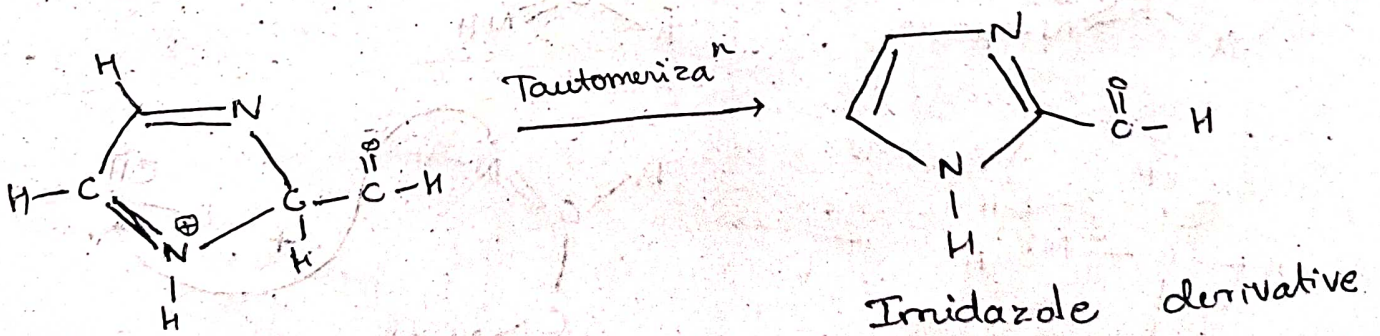 H
N
H-C
⊕
N
H
C
H
O
C-H
Tautomerizaⁿ
N
N
H
O
C-H
Imidazole derivative